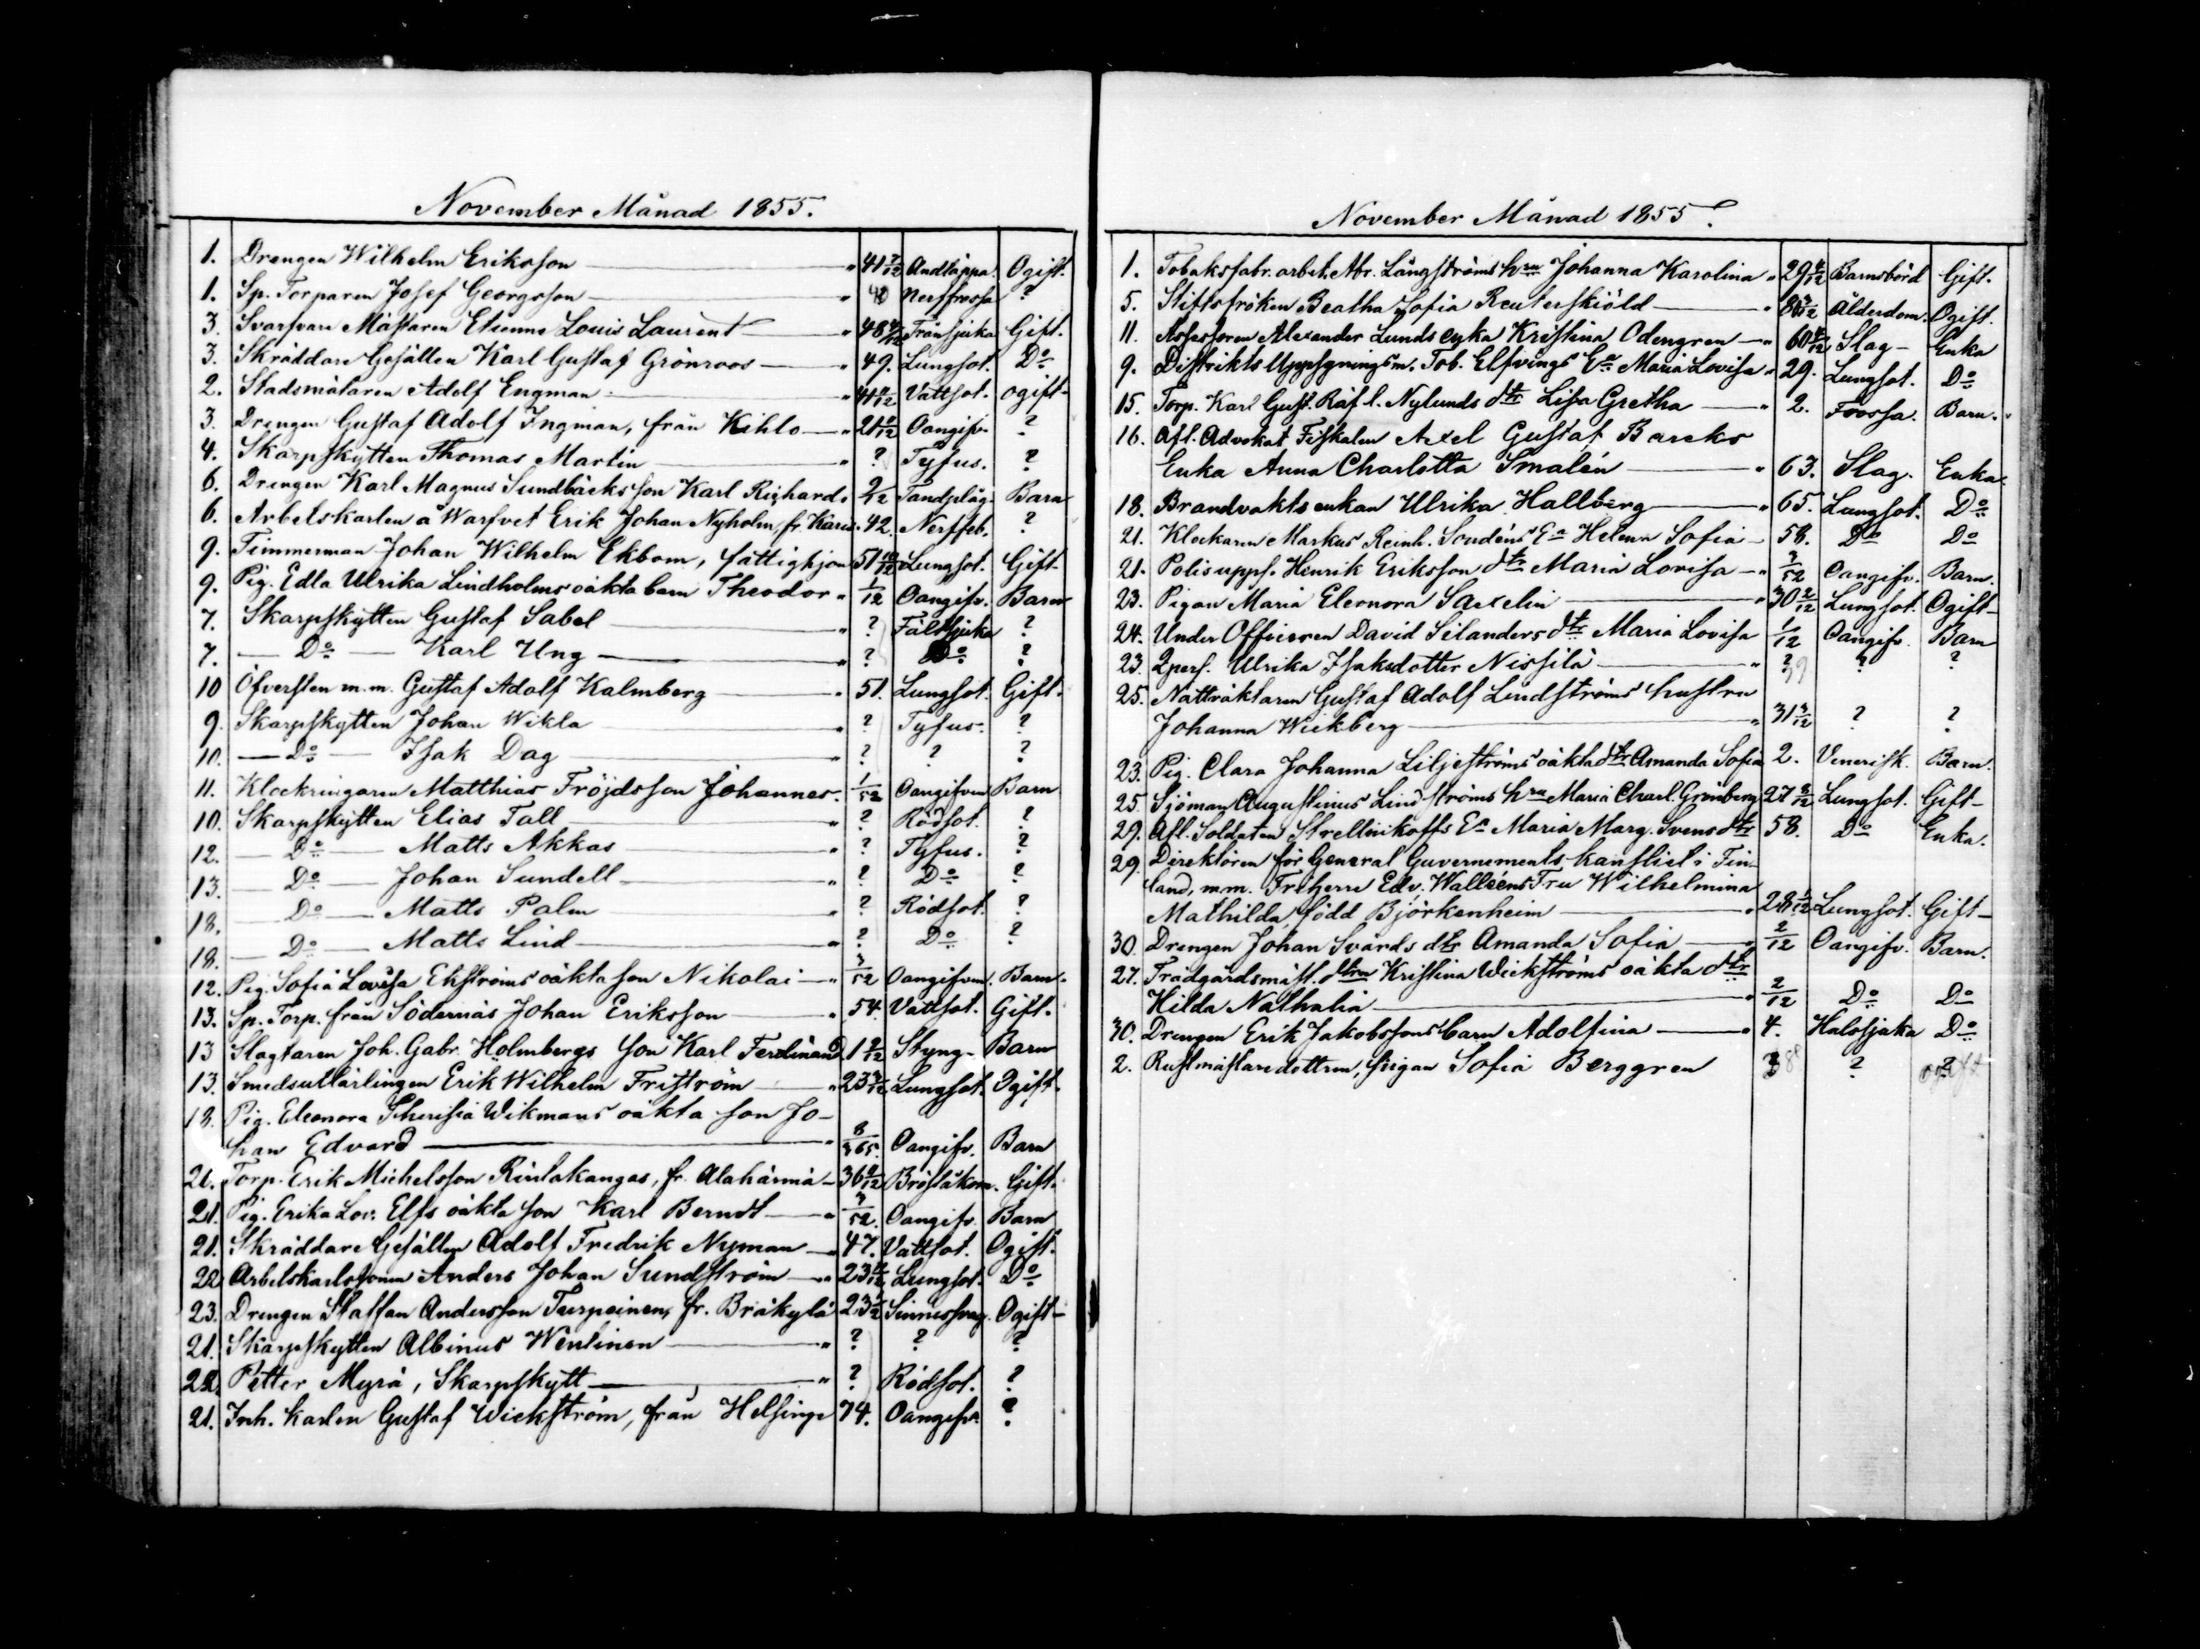 November Månad 1855.
1. Drengen Wilhelm Eriksson — " 41 7/12 Andtäppa. Ogift.
1. Sp. Torparen Josef Georgsson — " 40 Nerffrossa ?
3. Svarfvare Mästaren Etienne Louis Laurent " 48 Gift.
3. Skräddare Gesällen Karl Gustaf Grönroos — " 49. Lungsot. Do
2. Stadsmälaren Adolf Engman — " Vattsot. ogift
3. Drengen Gustaf Adolf Ingman, från Kihlo — " Oangifv. ?
4. Skarpskytten Thomas Martin — " ? Tyfus. ?
6. Drengen Karl Magnus Sundbäcks son Karl Richard " 9/12 Tandplåg. Barn
6. Arbetskarlen å Warfvet Erik Johan Nyholm, fr. Karis " 42. Nerffeb. ?
9. Timmerman Johan Wilhelm Ekbom, fattighjon 51 10/12 Lungsot. Gift
9. Pig. Edla Ulrika Lindholms oäkta barn Theodor " 1/12 Oangifv. Barn
7. Skarpskytten Gustaf Sabel — " ? Fältsjuka ?
7. — Do — Karl Ung — " ? Do ?
10 Öfversten m.m. Gustaf Adolf Kalmberg — " 51. Lungsot. Gift.
9. Skarpskytten Johan Wikla — " ? Tyfus. ?
10. — Do — Isak Dag — " ? ? ?
11. Klockringaren Matthias Fröjds son Johannes. 1/52 Oangifven Barn
10. Skarpskytten Elias Tall — " ? Rödsot. ?
12. — Do — Matts Akkas — " ? Tyfus. ?
13. — Do — Johan Sundell — " ? Do ?
18. — Do — Matts Palm " ? Rödsot. ?
18. — Do — Matts Lind — " ? Do ?
12. Pig. Sofia Lovisa Ekströms oäkta son Nikolai — " 3/52 Oangifven. Barn.
13. Sp. Torp. från Södernäs Johan Eriksson — " 54. Vattsot. Gift.
13 Slagtaren Joh. Gabr. Holmbergs son Karl Ferdinand 1 9/12 Styng. Barn
13. Smedsutlärlingen Erik Wilhelm Friström — " 23 3/12 Lungsot. Ogift.
18. Pig. Eleonora Theresia Wikmans oäkta son Jo-
han Edvard — " 8/365. Oangifv. Barn
21. Torp. Erik Michelsson Rintakangas, fr. Alahärmä — 36 Bröståkom. Gift.
21. Pig. Erika Lov. Elfs oäkta son Karl Berndt — " 3/52. Oangifv. Barn
21. Skräddare Gesällen Adolf Fredrik Nyman — " 47. Vattsot. Ogift.
22. Arbetskarlssonen Anders Johan Sundström — " 23 Lungsot. Do
23. Drengen Staffan Andersson Turpeinen, fr. Bräkylä 23 1/2 Sinnessvag. Ogift —
21. Skarpskytten Albinus Wentinen — " ? ? ?
22. Petter Myrä, Skarpskytt — " ? Rödsot. ?
21. Inh. karlen Gustaf Wickström, från Helsinge 74. Oangifv. ?
November Månad 1855.
1. Tobaksfabr. arbet. Abr. Långströms hru Johanna Karolina " 29 4/12 Barnsbörd Gift.
5. Stiftsfröken Beatha Sofia Reuterskiöld — " Ålderdom. Ogift.
11. Assessoren Alexander Lunds enka Kristina Odengren — " 60 Slag — Enka
9. Distrikts Uppsyningsm. Tob. Elfvings Ea Maria Lovisa " 29. Lungsot. Do
15. Torp. Karl Gust. Nylunds dtr Lisa Gretha — " 2. Frossa. Barn.
16. Afl. Advokat Fiskalen Axel Gustaf Barcks
Enka Anna Charlotta Smalén — " 63. Slag. Enka.
18. Brandvakts enkan Ulrika Hallberg — " 65. Lungsot. Do
21. Klockaren Markus Reinh. Soudéns Ea Helena Sofia — 58. Do Do
21. Polisuppf. Henrik Eriksson dtr Maria Lovisa — " 3/52 Oangifv. Barn.
23. Pigan Maria Eleonora Saxelin — " 30 2/12 Lungsot. Ogift —
24. Under Officeren David Silanders dtr Maria Lovisa 1/12 Oangifv. Barn
23. Qpers. Ulrika Isaksdotter Nissilä — " ? 39 ? ?
25. Nattväktaren Gustaf Adolf Lindströms hustru
Johanna Wickberg — " 31 3/12 ? ?
23. Pig. Clara Johanna Liljeströms oäkta dtr Amanda Sofia 2. Venerisk. Barn.
25. Sjöman Augustinus Lindströms hru Maria Charl. Grönberg 27 Lungsot. Gift —
29. Afl. Soldaten Strellnikoffs Ea Maria Marg. Svensdtr 58. Do Enka.
29. Direktören för General Guvernements kansliet i Fin-
land, m.m. Friherre Edv. Walléens Fru Wilhelmina
Mathilda, född Björkenheim — " 28 Lungsot. Gift —
30. Drengen Johan Svärds dtr Amanda Sofia — " 2/12 Oangifv. Barn.
27. Trädgårdsmäst. dtrn Kristina Wickströms oäkta dtr
Hilda Nathalia — " 2/12 Do Do
30. Drengen Erik Jakobssons barn Adolfina — " 4. Halssjuka Do
2. Rustmästaredottren, pigan Sofia Berggren ? ogift